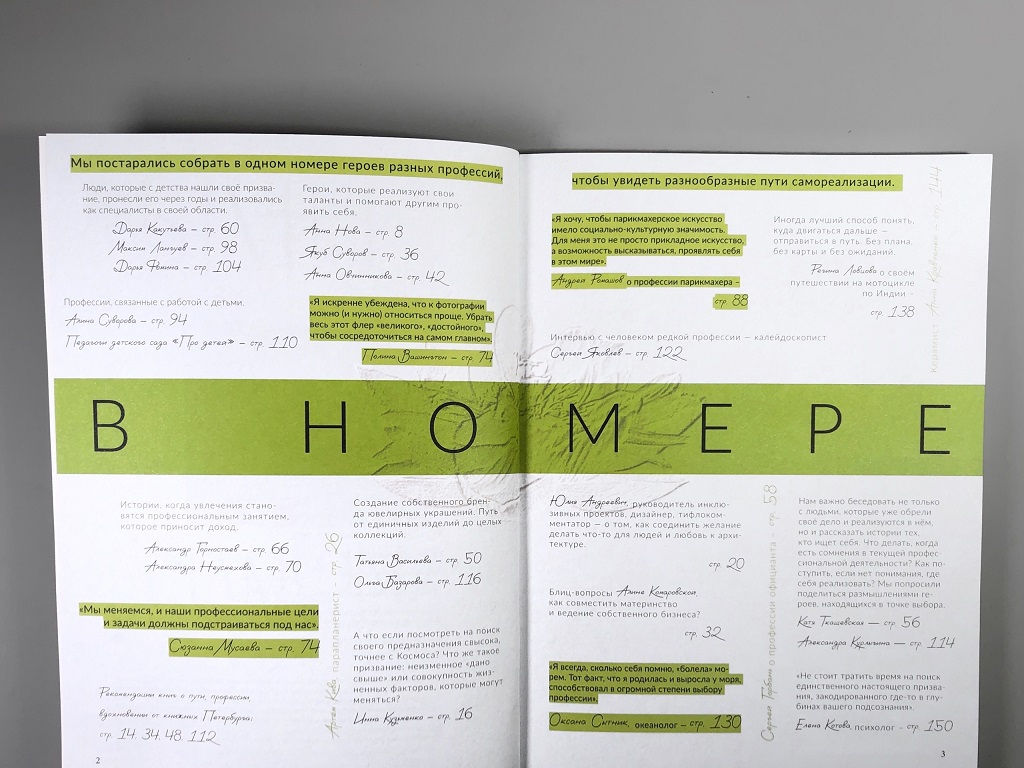 Мы постарались собрать в одном номере героев разных профессий,
Люди, которые с детства нашли своё призва-
ние, пронесли его через годы и реализовались
как специалисты в своей области.
Дарья Какутьева – стр. 60
Максим Лангуев – стр. 98
Дарья Фомина – стр. 104
Профессии, связанные с работой с детьми.
Алина Суворова – стр. 94
Педагоги детского сада «Про детей» – стр. 110
Герои, которые реализуют свои
таланты и помогают другим про-
явить себя.
Анна Нова – стр. 8
Якуб Суворов – стр. 36
Анна Овчинникова – стр. 42
«Я искренне убеждена, что к фотографии
можно (и нужно) относиться проще. Убрать
весь этот флер «великого», «достойного»,
чтобы сосредоточиться на самом главном».
Полина Вашингтон – стр. 74
чтобы увидеть разнообразные пути самореализации.
«Я хочу, чтобы парикмахерское искусство
имело социально-культурную значимость.
Для меня это не просто прикладное искусство,
а возможность высказываться, проявлять себя
в этом мире».
Андрей Ромашов о профессии парикмахера –
стр. 88
Иногда лучший способ понять,
куда двигаться дальше –
отправиться в путь. Без плана,
без карты и без ожиданий.
Регина Ловцова о своём
путешествии на мотоцикле
по Индии –
стр. 138
Интервью с человеком редкой профессии – калейдоскопист
Сергей Яковлев – стр. 122
Керамист Анна – стр. 144
В НОМЕРЕ
Истории, когда увлечения стано-
вятся профессиональным занятием,
которое приносит доход.
Александр Горностаев – стр. 66
Александра Неуспехова – стр. 70
«Мы меняемся, и наши профессиональные цели
и задачи должны подстраиваться под нас».
Сюзанна Мусаева – стр. 74
Рекомендации книг о пути, профессии,
вдохновении от книжных Петербурга:
стр. 14. 34. 48. 112
Артем Ким, парапланерист – стр. 26
Создание собственного брен-
да ювелирных украшений. Путь
от единичных изделий до целых
коллекций.
Татьяна Васильева – стр. 50
Ольга Базарова – стр. 116
А что если посмотреть на поиск
своего предназначения свысока,
точнее с Космоса? Что же такое
призвание: неизменное «дано
свыше» или совокупность жиз-
ненных факторов, которые могут
меняться?
Инна Кузьменко – стр. 16
2
Юлия Андреевич, руководитель инклю-
зивных проектов, дизайнер, тифлоком-
ментатор – о том, как соединить желание
делать что-то для людей и любовь к архи-
тектуре.
стр. 20
Блиц-вопросы Алине Комаровской,
как совместить материнство
и ведение собственного бизнеса?
стр. 32
«Я всегда, сколько себя помню, «болела» мо-
рем. Тот факт, что я родилась и выросла у моря,
способствовал в огромной степени выбору
профессии».
Оксана Сытник, океанолог – стр. 130
Сергей Горбань о профессии официанта – стр. 58
Нам важно беседовать не только
с людьми, которые уже обрели
своё дело и реализуются в нём,
но и рассказать истории тех,
кто ищет себя. Что делать, когда
есть сомнения в текущей профес-
сиональной деятельности? Как по-
ступить, если нет понимания, где
себя реализовать? Мы попросили
поделиться размышлениями ге-
роев, находящихся в точке выбора.
Катя Ткашевская – стр. 56
Александра Курмыкина – стр. 114
«Не стоит тратить время на поиск
единственного настоящего призва-
ния, закодированного где-то в глу-
бинах вашего подсознания».
Елена Котова, психолог – стр. 150
3